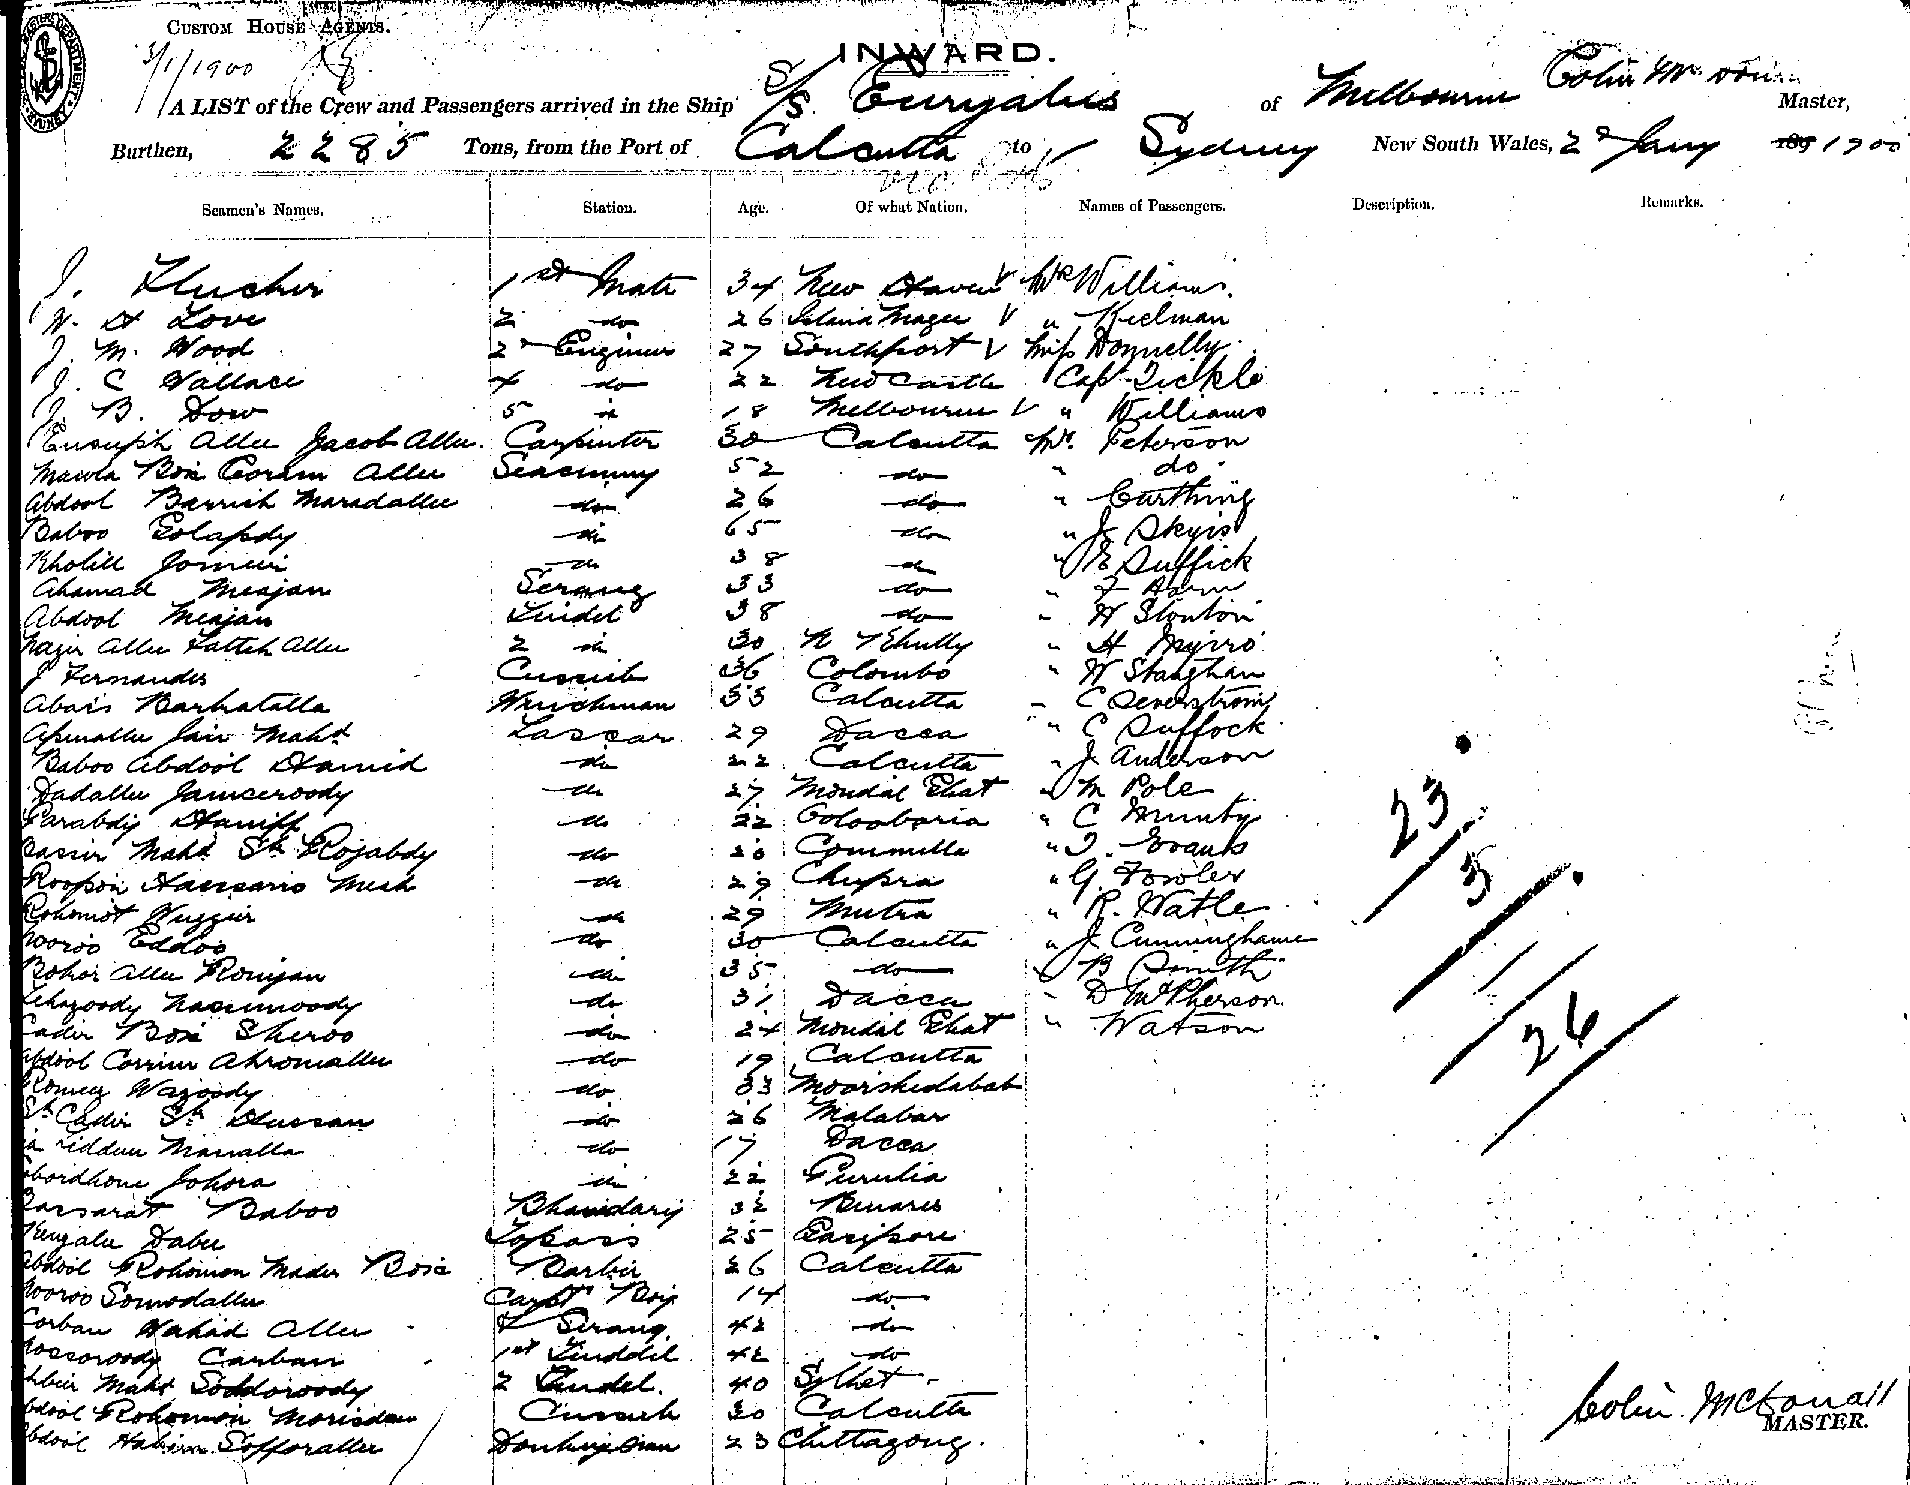 CUSTOM HOUSE AGENTS.
3/1/1900
INWARD.
A LIST of the Crew and Passengers arrived in the Ship S/S. Euryalus of Melbourne Colin Mc Master,
Burthen, 2285 Tons, from the Port of Calcutta to Sydney New South Wales, 2d Jany 189 1900
Seamen's Names. Station. Age. Of what Nation. Names of Passengers. Description. Remarks.
J. 1st Mate 34 New Haven Mr Williams.
W. H Love 2 do 26 Island Magee " Kielman
J. M. Wood 2d Engineer 27 Southport Miss Donnelly
J. C Wallace 4 do 22 Newcastle Capt Tickle
J. B. Dow 5 do 18 Melbourne " Williams
Eusuph Allee Jacob Allee. Carpinter 30 Calcutta Mr. Peterson
Mawla Box Corim Allee Seacunny 52 do " do
Abdool Barrick Maradallee do 26 do " Carthing
Baboo Golapdy do 65 do " J Skyis
Kholill Jomeir do 38 do " E Suffick
Ahamad Meajan Serang 33 do "
Abdool Meajan Tindel 38 do " W Stonton
Nazir Allee Fatteh Allee 2 do 30 " H
J Fernandes Cussab 36 Colombo " W Staughan
Abais Barkatalla Winchman 33 Calcutta " C Severstrom
Jan Mahd Lascar 29 Dacca " C Suffock
Baboo Abdool Hamid do 22 Calcutta " J Anderson
Dadallee Jamceroody do 27 Mondal Ghat " M Pole
Garabdy Haniff do 22 Goloobaria " C Munty
Mahd Sk Rojabdy do 20 Commilla " T. Evans
Roopon Hassans Mesh do 29 Chupra " G. Fowler
Rohomot Wuzzir do 29 Mutra " R. Watle
Nooroo Eddoo do 30 Calcutta " J Cunninghame
Bohor Allee Ronijan do 35 do " B Smith
Nasimoody do 31 Dacca " D McPherson
Cader Box Sheroo do 24 Mondal Ghat " Watson
Abdool Corrim Ahromallee do 19 Calcutta
Romen Wazoody do 33 Moorshedabab
Sk Cader Sk Hussan do 26 Malabar
do 17 Dacca
Johora do 22 Purulia
Bassarat Baboo Bhandary 32 Benares
Dabee Topass 25 Gazipore
Abdool Rohomon Mader Box Barber 26 Calcutta
Nooroo Somodallee Capt Boy 14 do
Corban Wahad Allee Serang. 42 do
Nossoroody Carban 1st Tinddel 42 do
Mahd Soddoroody 2 Tindel. 40 Sylhet
Abdool Rohomon Cussab 30 Calcutta
Abdool Hakim Sofforallee Donkeyman 23 Chittagong.
23
3
26
Colin McDonall
MASTER.